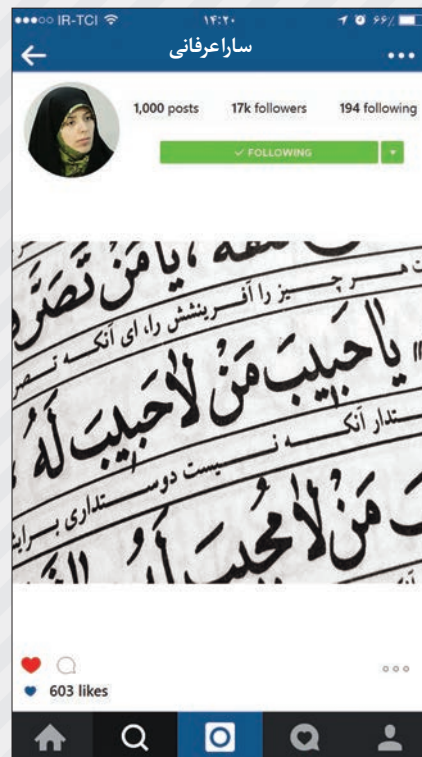 IR-TCI ۱۴:۲۰
ساراعرفانی
1,000 posts 17k followers 194 following
FOLLOWING
یا مَنْ
هر چیز را آفرینشش را، ای آنکه
یا حَبیبَ مَنْ لاحَبیبَ لَهُ
آنکه نیست دوستداری
مَنْ لامُجیبَ لَهُ
603 likes